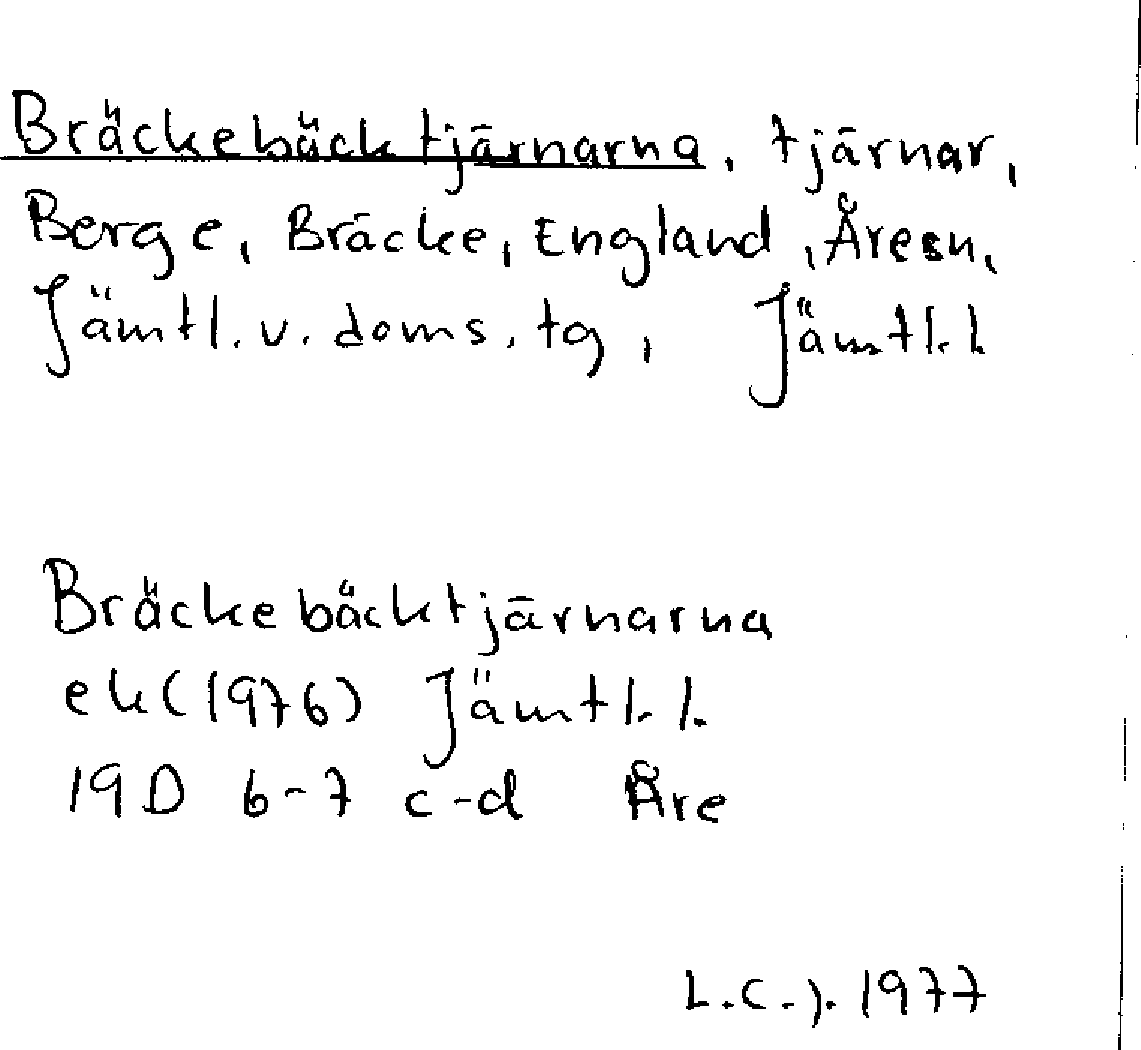 Bräckebäcktjärnarna, tjärnar,
Berge, Bräcke, England, Åre sn,
Jämtl. v. doms. tg, Jämtl. l.
Bräckebäcktjärnarna
ek (1976) Jämtl. l.
19D 6-7 c-d Åre
L.C.J. 1977